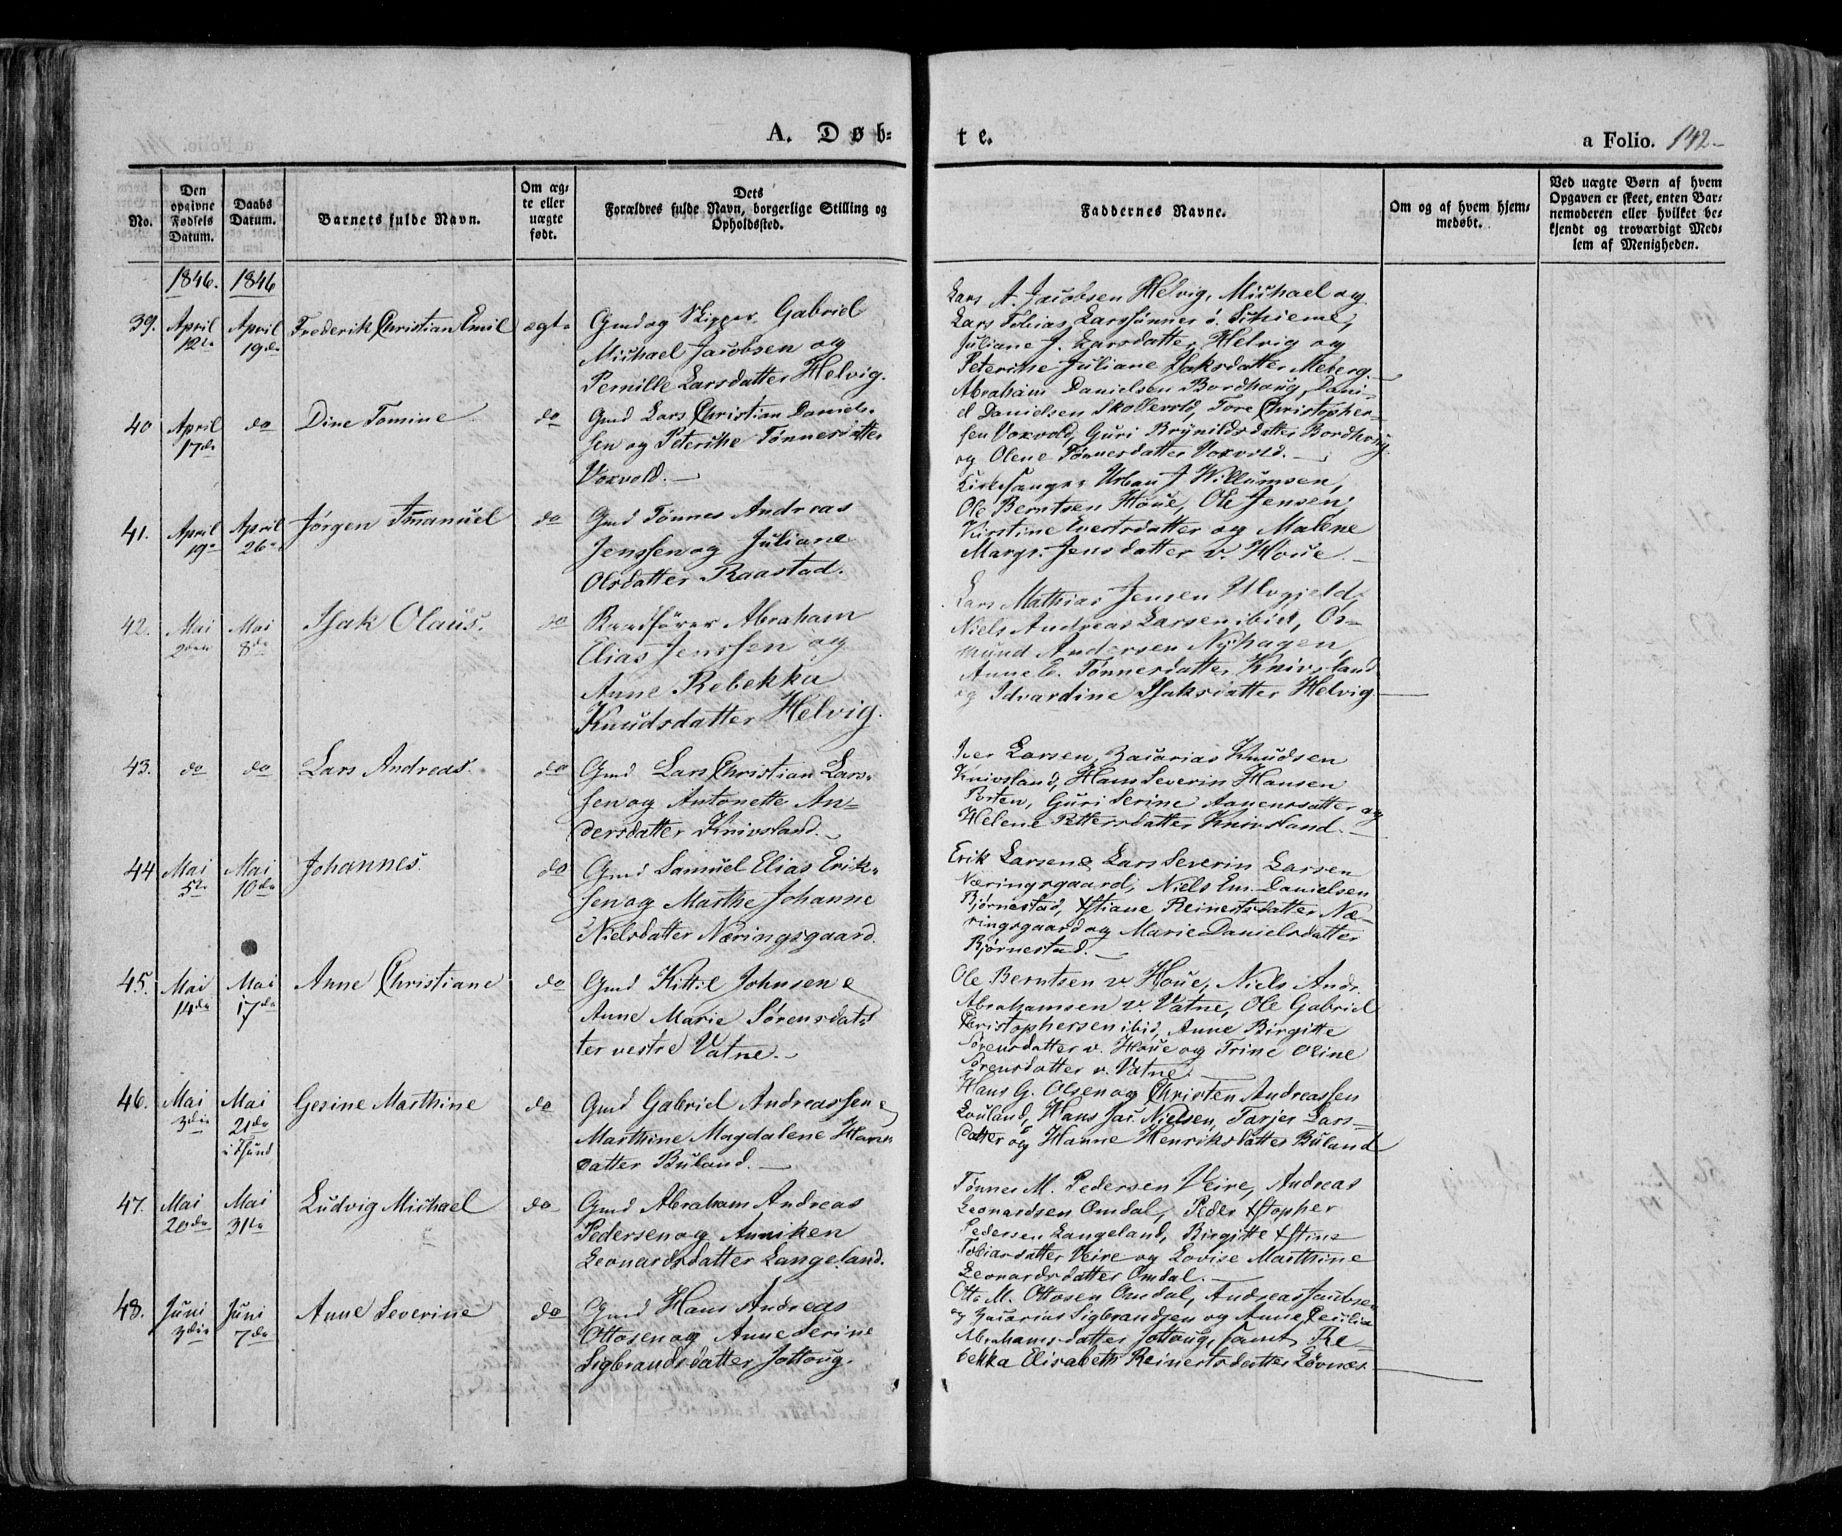 A. Døb-te.
a Folio. 142-
No.
Den opgivne Fødsels Datum.
Daabs Datum.
Barnets fulde Navn.
Om ægte eller uægte født.
Dets Forældres fulde Navn, borgerlige Stilling og Opholdssted.
Faddernes Navne.
Om og af hvem hjemmedøbt.
Ved uægte Børn af hvem Opgaven er skeet, enten Barnemoderen eller hvilket bekjendt og troværdigt Medlem af Menigheden.
1846. 1846
39. April 12te April 19de Frederik Christian Emil ægte
Gmd og Skipper Gabriel
Michael Jacobsen og
Pernille Larsdatter Helvig.
Lars A. Jacobsen Helvig, Michael og
Lars Tobias Larssønner ö. Schieme,
Juliane J. Larsdatter Helvig og
Peterike Juliane Isaksdatter Meberg.
40 April 17de do Dine Tomine do
Gmd Lars Christian Daniel-
sen og Peterike Tønnesdatter
Voxvold.
Abraham Danielsen Bordhaug, Dani-
el Danielsen Skollevold, Tore Christopher-
sen Voxvold, Guri Brynildsdatter Bordhaug
og Olene Tønnesdatter Voxvold.
41. April 19de April 26de Jørgen Emanuel do
Gmd Tønnes Andreas
Jenssen og Juliane
Olsdatter Raastad.
Kirkesanger Urban J Willumsen,
Ole Berntsen Houe, Ole Jensen,
Kirstine Evertsdatter og Malene
Margr. Jensdatter v. Houe.
42. Mai 2den Mai 8de Isak Olaus. do
Rundfører Abraham
Elias Jenssen og
Anne Rebekka
Knudsdatter Helvig.
Lars Mathias Jensen Ulvgjeld,
Niels Andreas Larsen ibid, Os-
mund Andersen Nyhagen,
Anne E. Tønnesdatter Knivsland
og Idvardine Isaksdatter Helvig
43. do do Lars Andreas. do
Gmd Lars Christian Lars-
sen og Antonette An-
dersdatter Knivsland.
Iver Larsen, Zacarias Knudsen
Knivsland, Hans Severin Hansen
Porten, Guri Serine Aanensdatter og
Helene Pettersdatter Knivsland.
44 Mai 5te Mai 10de Johannes. do
Gmd Samuel Elias Erik-
sen og Marthe Johanne
Nielsdatter Næringsgaard.
Erik Larsen & Lars Severin Larsen
Næringsgaard, Niels Em. Danielsen
Bjørnestad, Xstiane Reinertsdatter Næ-
ringsgaard og Marie Danielsdatter
Bjørnestad.
45. Mai 14de Mai 17de Anne Christiane do
Gmd Kittil Johnsen &
Anne Marie Sørensdat-
ter vestre Vatne.
Ole Berntsen v Houe, Niels Andr.
Abrahamsen v. Vatne, Ole Gabriel
Christophersen ibid, Anne Birgitte
Sørensdatter v. Houe og Trine Oline
Sørensdatter v. Vatne.
46. Mai 3die Mai 21de i Hsund Gesine Marthine do
Gmd Gabriel Andreassen &
Marthine Magdalene Hans-
datter Buland.
Hans G. Olsen og Christen Andreassen
Louland, Hans Jac. Nielsen, Tarjer Lars-
datter og Hanne Henriksdatter Buland
47. Mai 20de Mai 31te Ludvig Michael do
Gmd Abraham Andreas
Pedersen og Anniken
Leonardsdatter Langeland.
Tønnes M. Pedersen Veire, Andreas
Leonardsen Omdal, Peder Xstopher
Pedersen Langeland, Birgitte Xstine
Tobiasdatter Veire og Lovise Marthine
Leonardsdatter Omdal.
48. Juni 3die Juni 7de Anne Severine do
Gmd Hans Andreas
Ottosen og Anne Serine
Sigbrandsdatter Jottoug.
Otto M. Ottosen Omdal, Andreas Jacobsen
og Zacarius Sigbrandsen og Anne Cecilia
Abrahamsdatter Jottoug, samt Re-
bekka Elisabeth Reinertsdatter Lövnæs